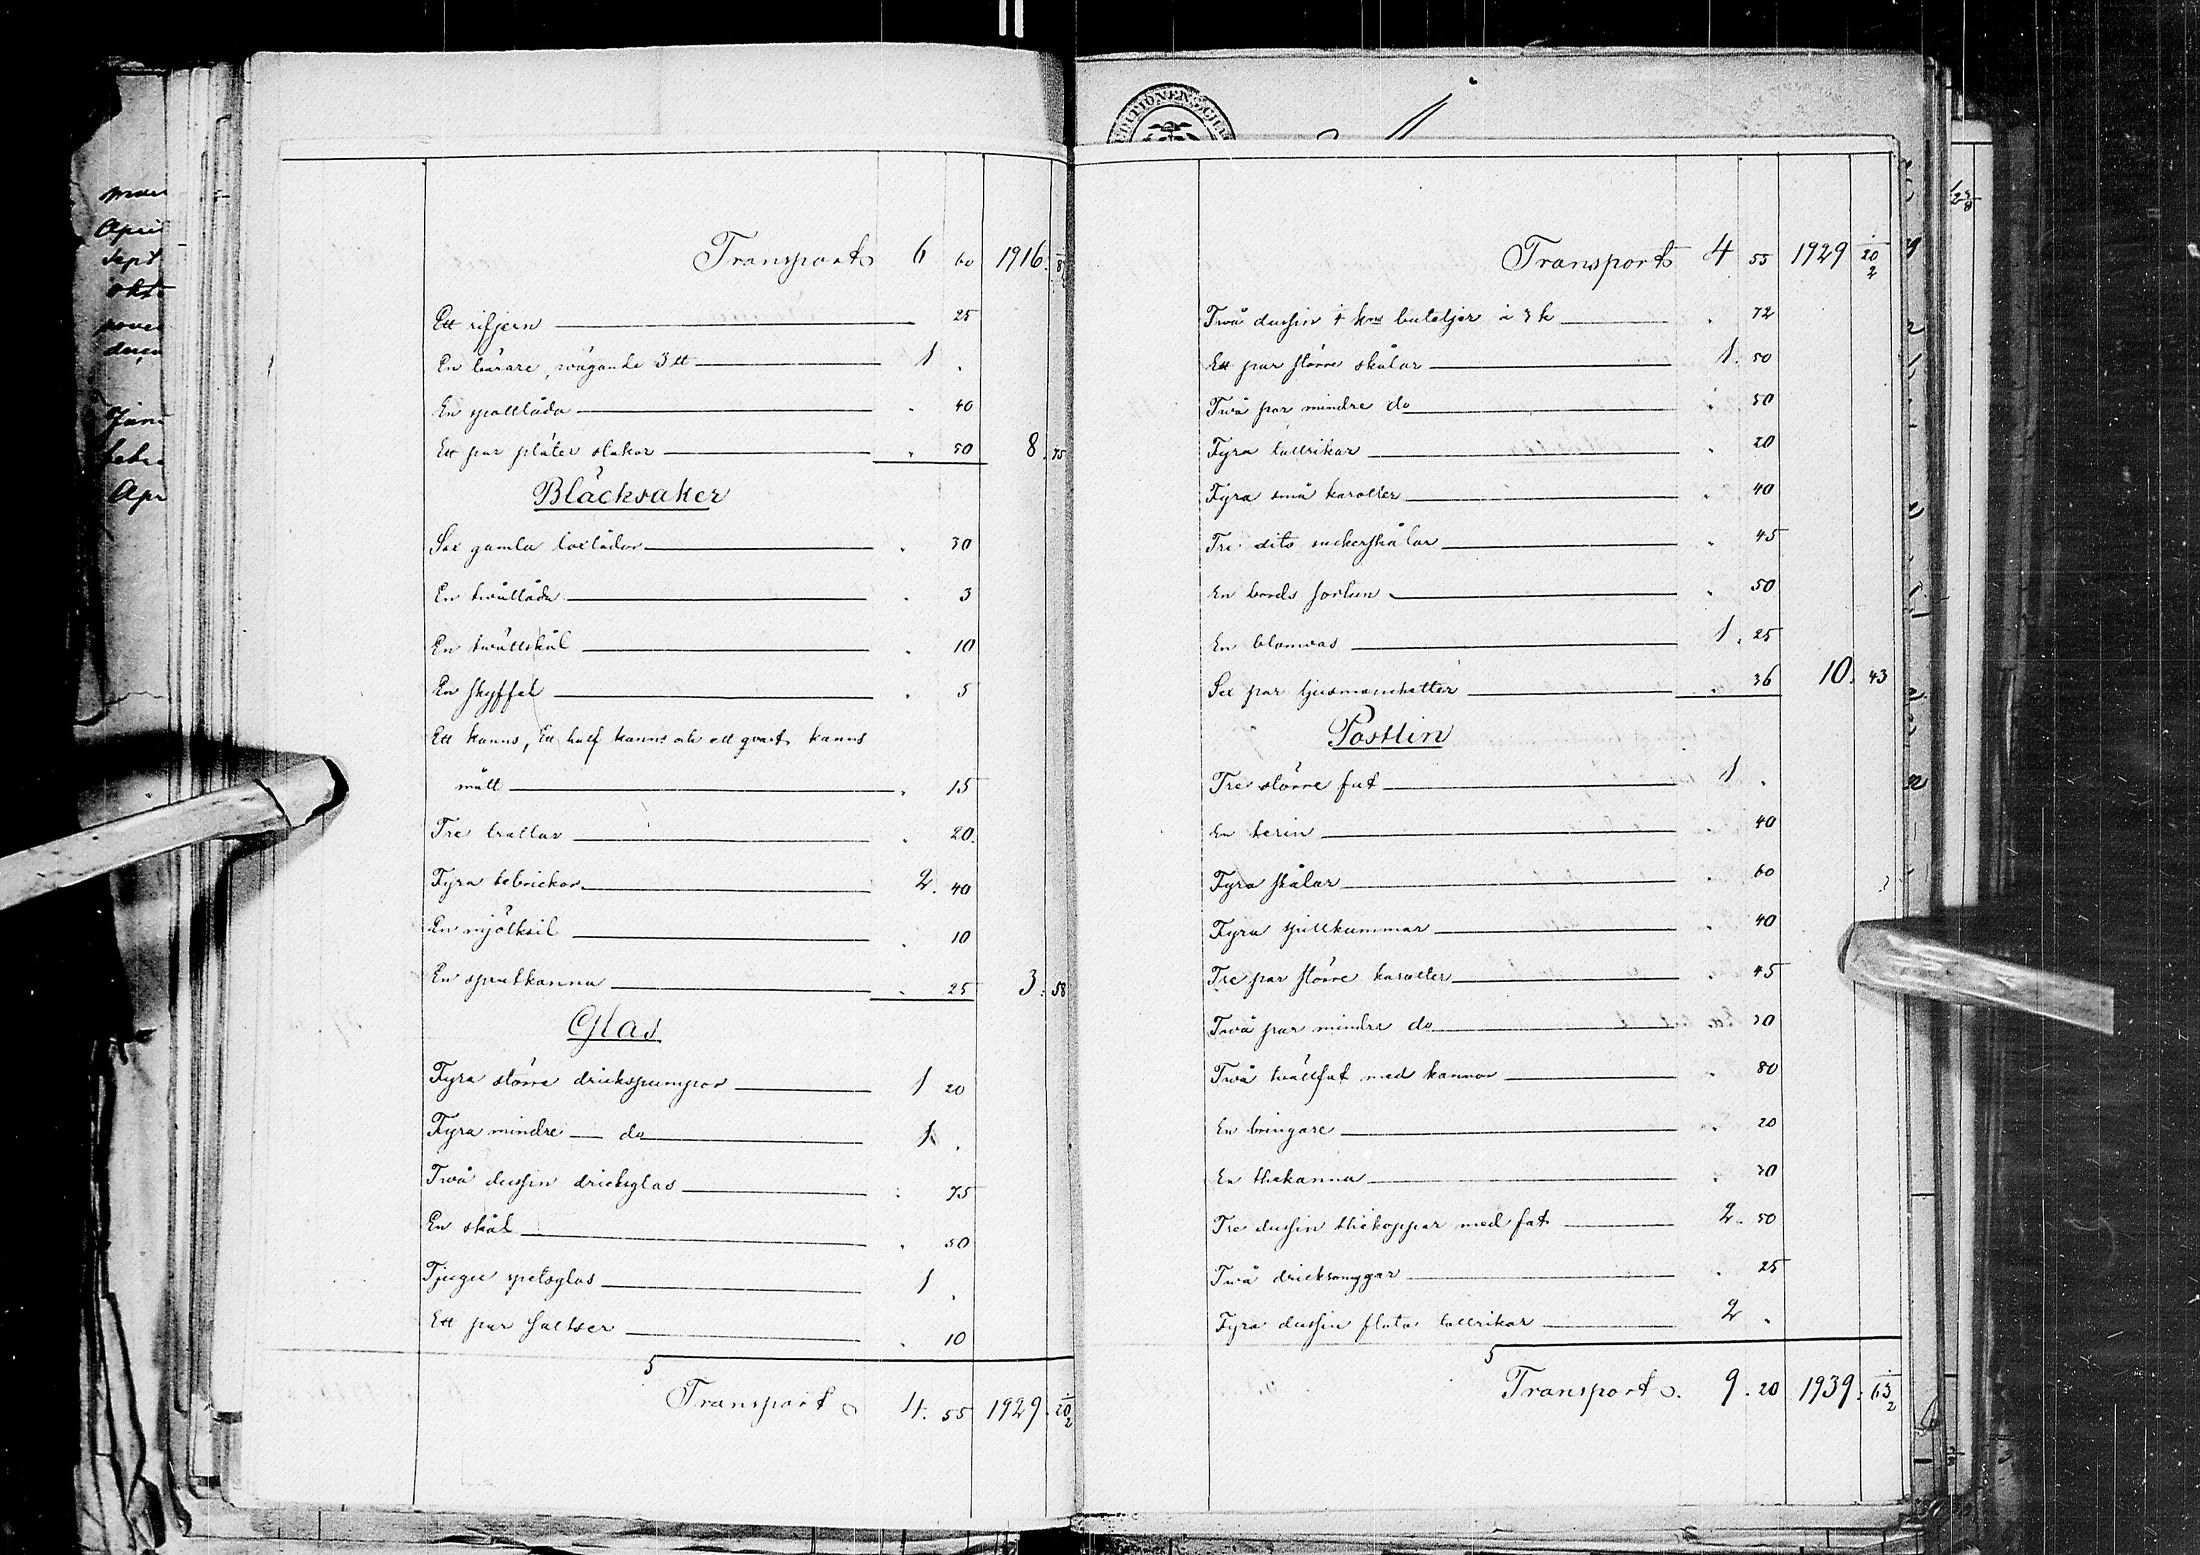 Transport 6 60 1916. 87
Ett rifjern 25
En bärare, wägande 3 tt 1 .
En spottlåda . 40
Ett par pläter stakar . 50 8. 75
Bläcksaker
Sex gamla loxlådor . 30
En twållåda . 3
En twållskål . 10
En skyffel . 5
Ett kanns, Ett half kanns och ett qvart kanns
mått . 15
Tre trattar . 20.
Fyra tebrickor 2. 40
En mjölksil . 10
En sprutkanna . 25 3. 58
Glas
Fyra större drickspumpor 1 20
Fyra mindre do 1 .
Twå dussin dricksglas . 75
En skål . 50
Tjugu spetsglas 1 .
Ett par saltser . 10
Transport 4. 55 1929. 20/2
EDITIONENS CHA
Transport 4 55 1929 20/2
Twå dussin buteljer à 3 k . 72
Ett par större skålar 1. 50
Twå par mindre do . 50
Fyra tallrikar . 20
Fyra små karotter . 40
Tre dito sockerskålar . 45
En bords 50
En blomvas 1. 25
Sex par ljusmanchetter . 36 10. 43
Postlin
Tre större fat 1 .
En terin . 40
Fyra skålar . 60
Fyra spillkummar . 40
Tre par större karotter . 45
Twå par mindre do . 30
Twå twättfat med kannor . 80
En bringare . 20
En thekanna . 30
Tre dussin thekoppar med fat 2. 50
Twå dricksmuggar . 25
Fyra dussin flata tallrikar 2 .
Transport 9. 20 1939. 63/2